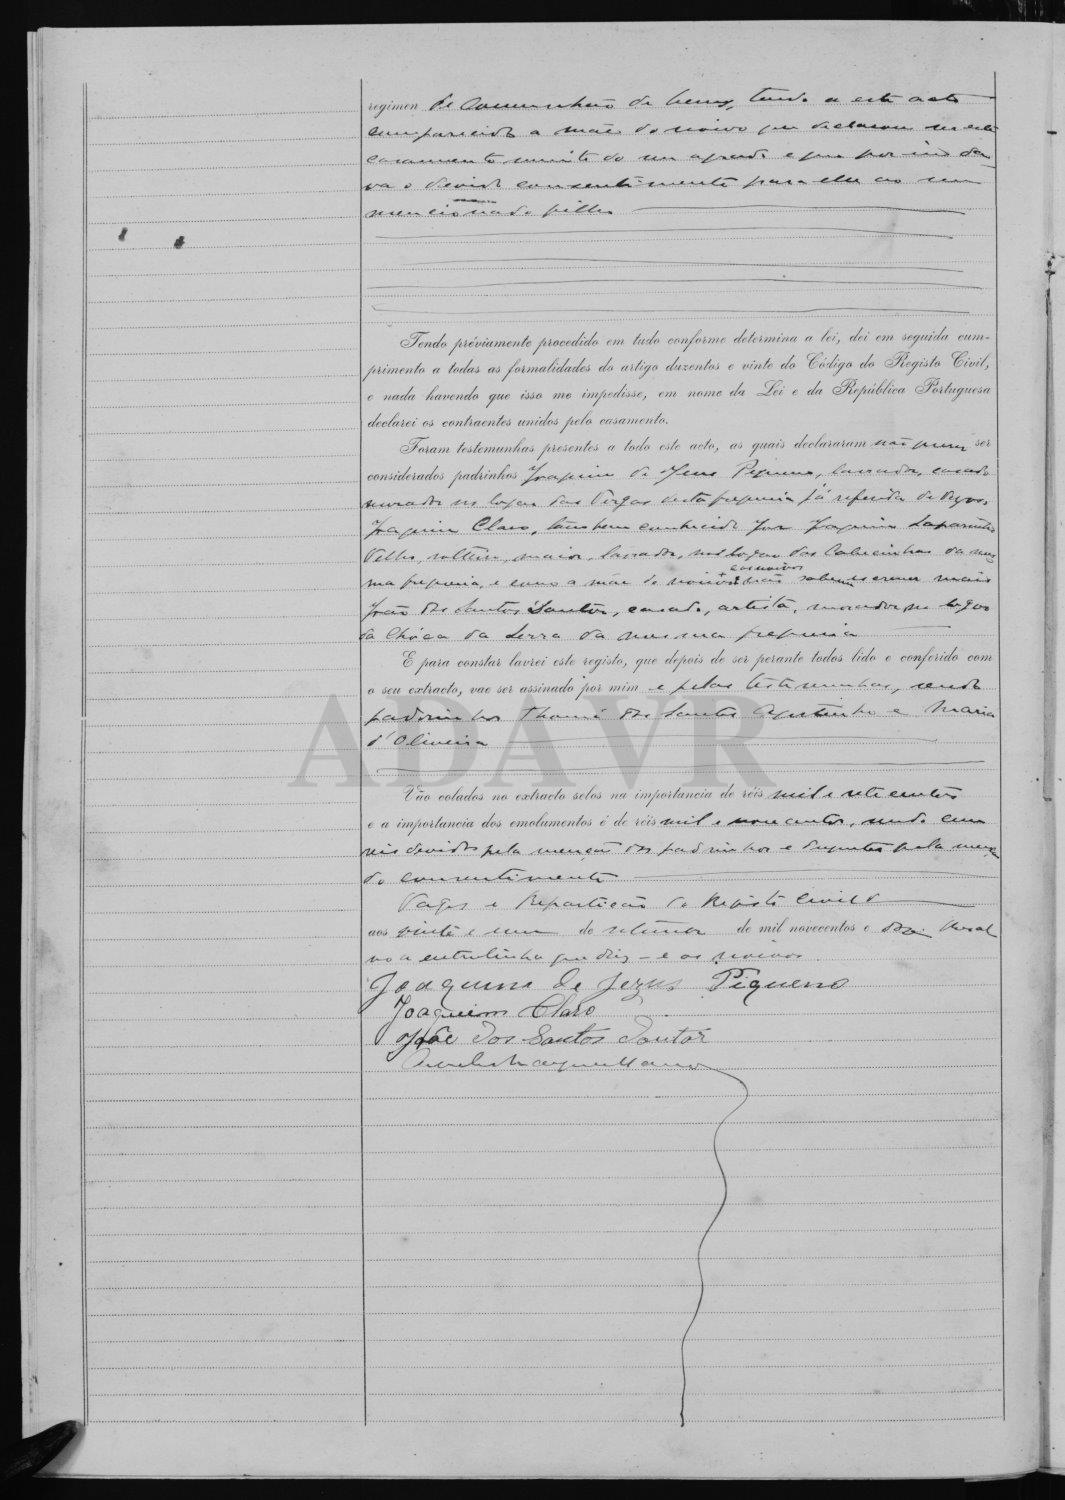 regimen de communhão de bens, tendo a este acto
comparecido a mãe do noivo que declarou ser este
casamento muito do seu agrado e que por isso da-
va o devido consentimento para elle ao seu
mencionado filho
Tendo préviamente procedido em tudo conforme determina a lei, dei em seguida cum-
primento a todas as formalidades do artigo duzentos e vinte do Código do Registo Civil,
e nada havendo que isso me impedisse, em nome da Lei e da República Portuguesa
declarei os contraentes unidos pelo casamento.
Foram testemunhas presentes a todo este acto, as quais declararam não querer ser
considerados padrinhos Joaquim de Jesus Pequeno, lavrador, casado
morador no logar das Vergas desta freguesia já referida de Vagos,
Joaquim Claro, tambem conhecido por Joaquim
Velho, solteiro, maior, lavrador, no logar das da mes
ma freguesia, e como a mãe do noivo e os noivos não sabem escrever mais
João dos Santos Santór, casado, artista, morador no logar
da Chóca da Serra da mesma freguesia
E para constar lavrei este registo, que depois de ser perante todos lido e conferido com
o seu extracto, vae ser assinado por mim e pelas testemunhas, sendo
padrinhos Thomé dos Santos Agostinho e Maria
d'Oliveira
ADAVR
Vão colados no extracto selos na importancia de réis mil e sete centos
e a importancia dos emolumentos é de réis mil e novecentos, sendo cem
reis devidos pela menção dos padrinhos e duzentos pela menção
do consentimento
Vagos e Repartição do Registo Civil
aos vinte e um de de mil novecentos e Resal
vo a entrelinha que diz - e os noivos
Joaquim de Jezus Piqueno
Joaquim Claro
João dos Santos Santór